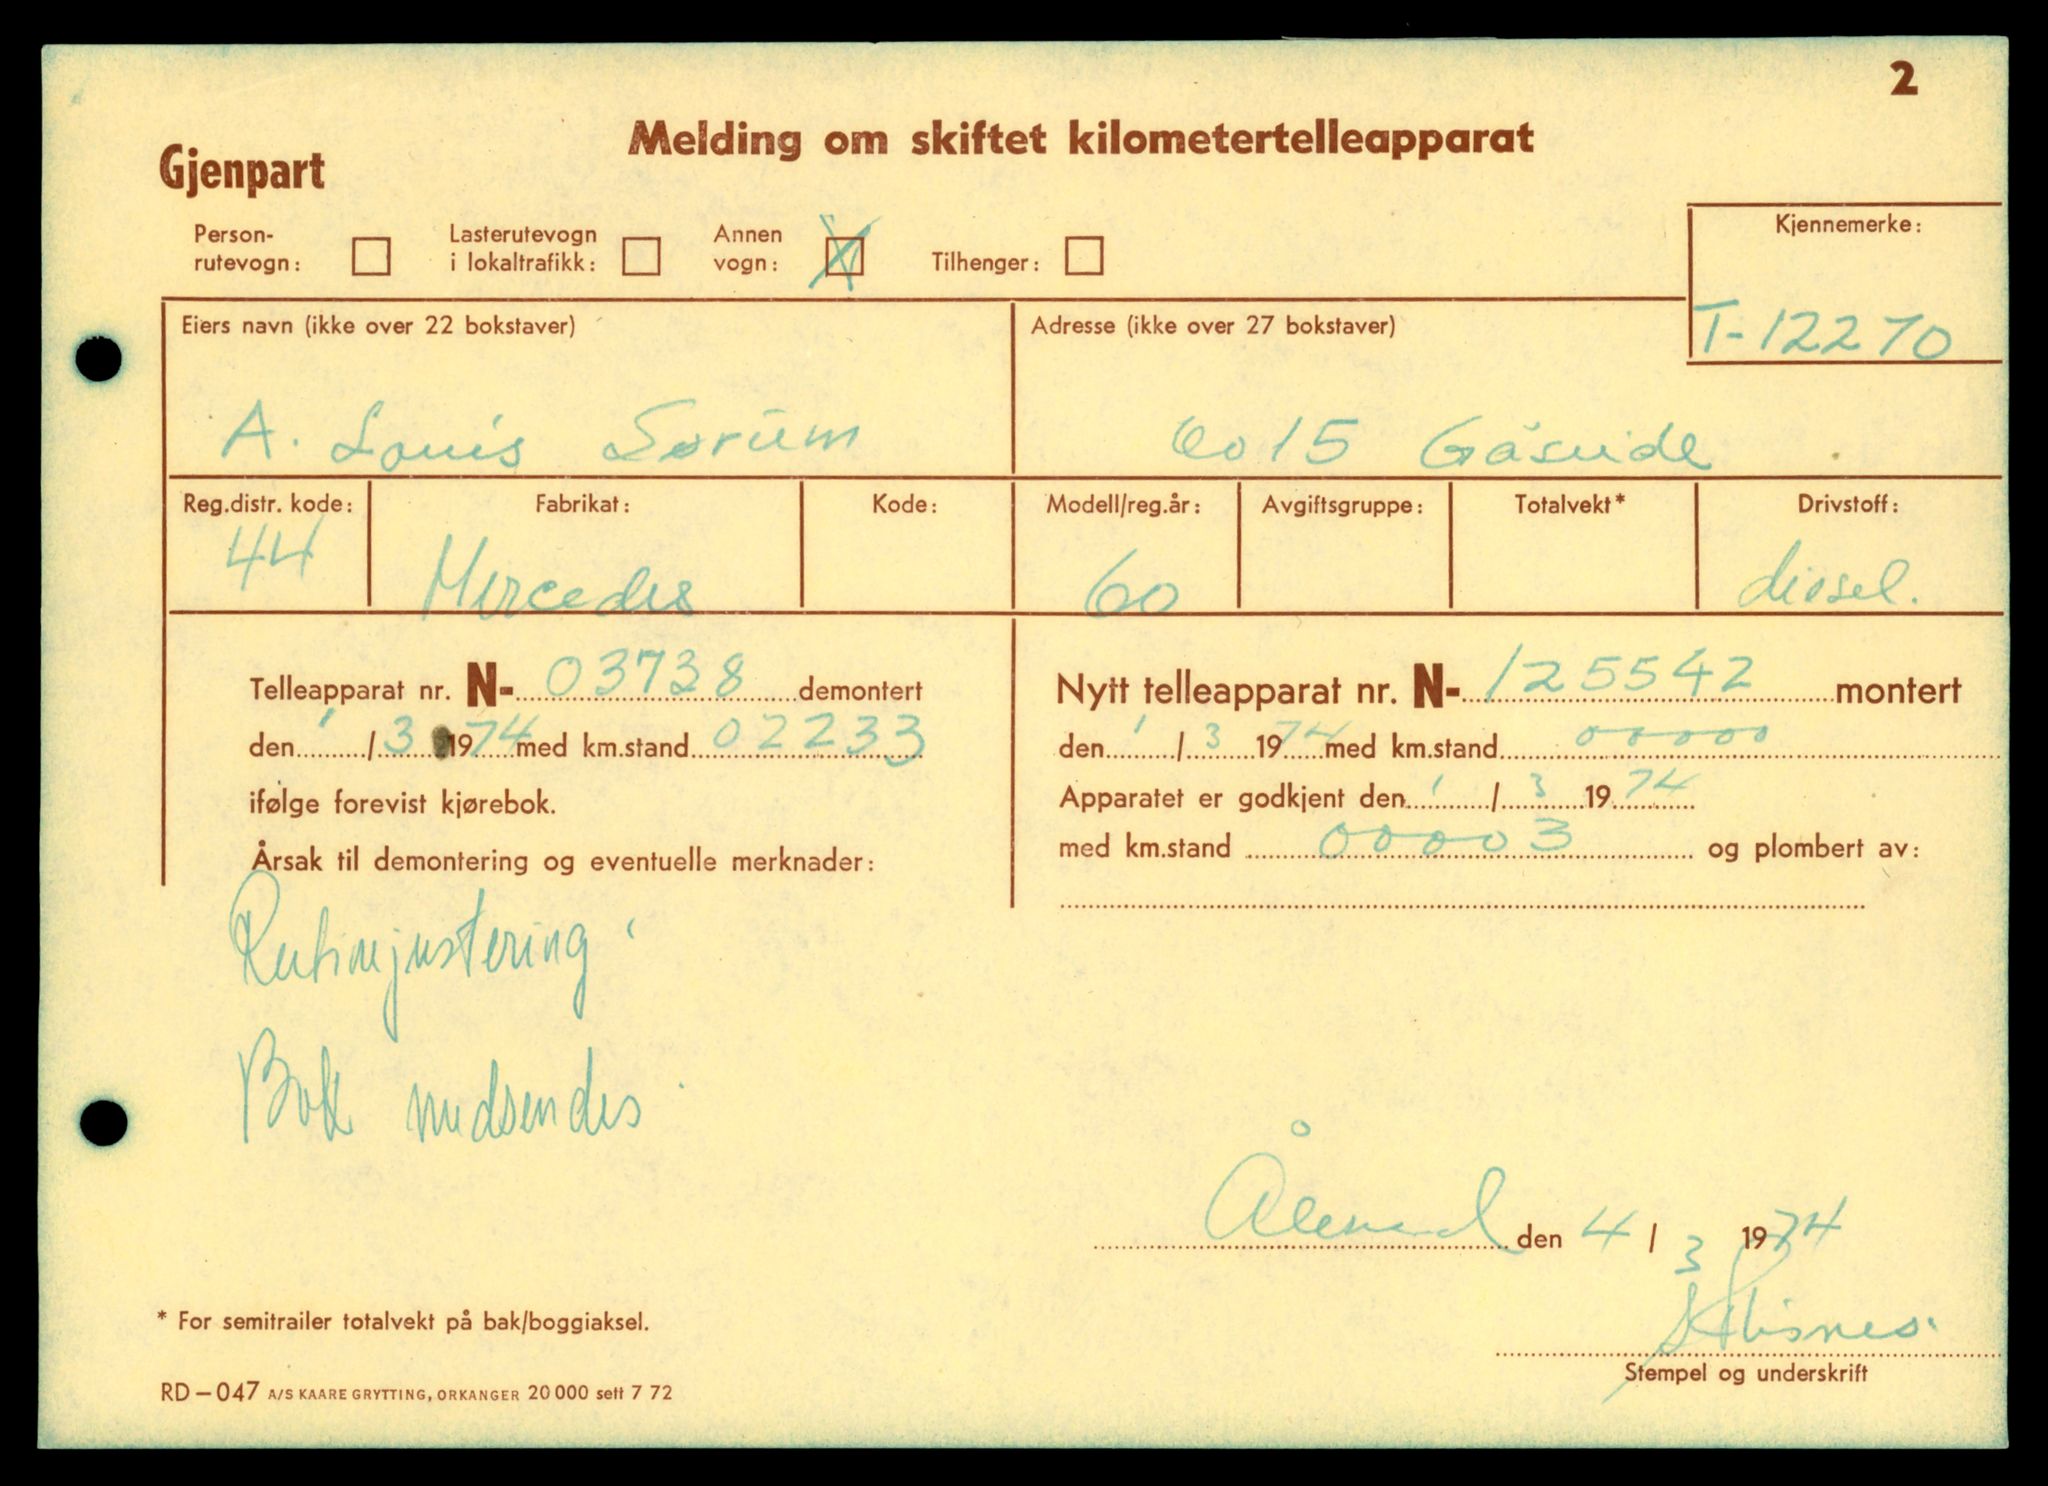 2
Melding om skiftet kilometertelleapparat
Gjenpart
Person-
rutevogn:
Lasterutevogn
i lokaltrafikk:
Annen
vogn: X
Tilhenger:
Kjennemerke:
T-12270
Eiers navn (ikke over 22 bokstaver)
A. Louis Sorum
Adresse (ikke over 27 bokstaver)
6015 Gåseide
Reg.distr. kode:
44
Fabrikat:
Mercedes
Kode:
Modell/reg.år:
60
Avgiftsgruppe:
Totalvekt*
Drivstoff:
diesel.
Telleapparat nr. N- 03738 demontert
den 1/3 1974 med km.stand 02233
ifølge forevist kjørebok.
Årsak til demontering og eventuelle merknader:
Rutinejustering
Bok medsendes
Nytt telleapparat nr. N- 125542 montert
den 1/3 1974 med km.stand 00000
Apparatet er godkjent den 1/3 1974
med km.stand 00003 og plombert av:
Ålesund den 4/3 1974
Stempel og underskrift
* For semitrailer totalvekt på bak/boggiaksel.
RD-047 A/S KAARE GRYTTING, ORKANGER 20 000 sett 7 72